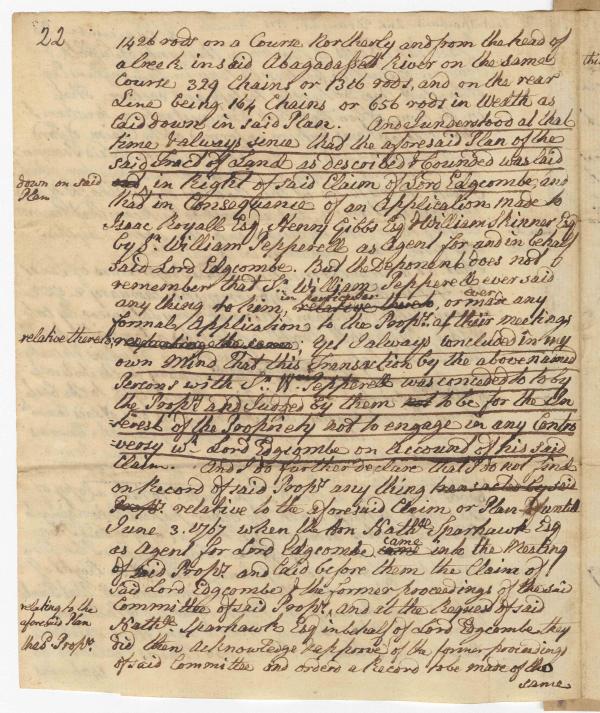 22
1426 rods on a Course Northerly and from the head of
a Creek in said Abagadassett River on the same
Course 329 Chains or 1316 rods, and on the rear
Line being 164 Chains or 656 rods in Weth as
laid down in said Plan. And I understood at that
time & always since that the aforesaid Plan of the
said Tract of Land as described & bounded was laid
down on said Plan
in Right of said Claim of Lord Edgcombe, and
had in Consequence of an Application made to
Isaac Royall Esq, Henny Gibbs Esq & William Skinner Esq
by Sr. William Pepperell as Agent for and in behalf
said Lord Edgcombe. But the Deponent does not
remember that Sr. William Pepperell ever said
any thing to him, in particular relative thereto, or ever made any
formal Application to the Propts. at their meeting
relative thereto
regarding the same; Yet I always concluded in my
own Mind That this Transaction by the above named
Persons with Sr. Wm. Pepperell was conceded to by
the Propts and Judged by them not to be for the In
terest of the Propriety not to engage in any Contro
versy wth. Lord Edgcombe on Account of his said
Claim. And I do further declare that I do not find
on Record of said Propts any thing transacted by said
Propts. relative to the aforesaid Claim or Plan untill
June 3. 1767 when the Hon Nathll Sparhawk Esq
as Agent for Lord Edgcombe came into the Meeting
of said Propts. and laid before them the Claim of
said Lord Edgcombe & the former proceedings of the said
relating to the aforesaid Plan
Committee of said Propts, and at the Request of said
Nathll. Sparhawk Esq in behalf of Lord Edgcombe, they
the sd. Propts.
did then acknowledge & approve of the former proceedings
of said Committee and orderd a Record to be made of the
same